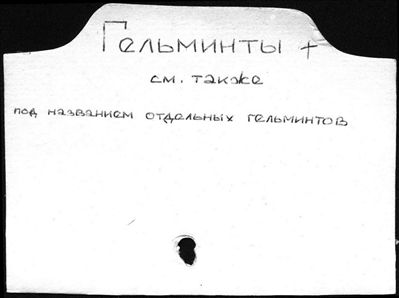 Гельминты +
см. также
под названием отдельных гельминтов